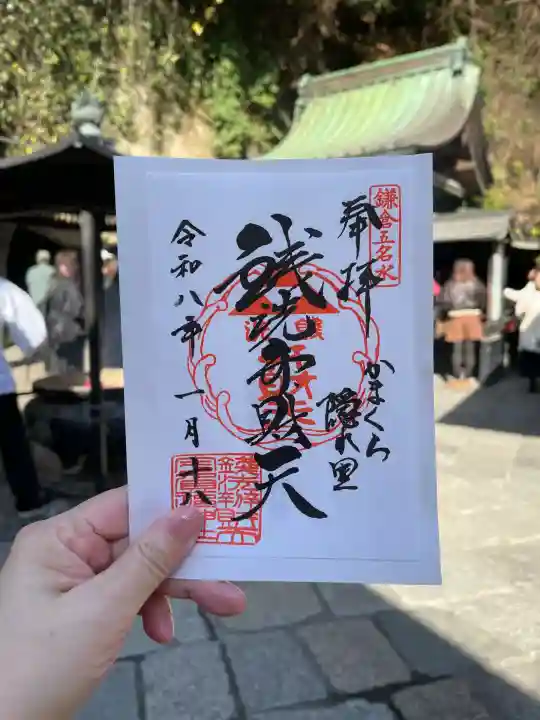 鎌倉五名水
奉拝
かまくら
隠れ里
銭洗弁財天
令和八年一月十八